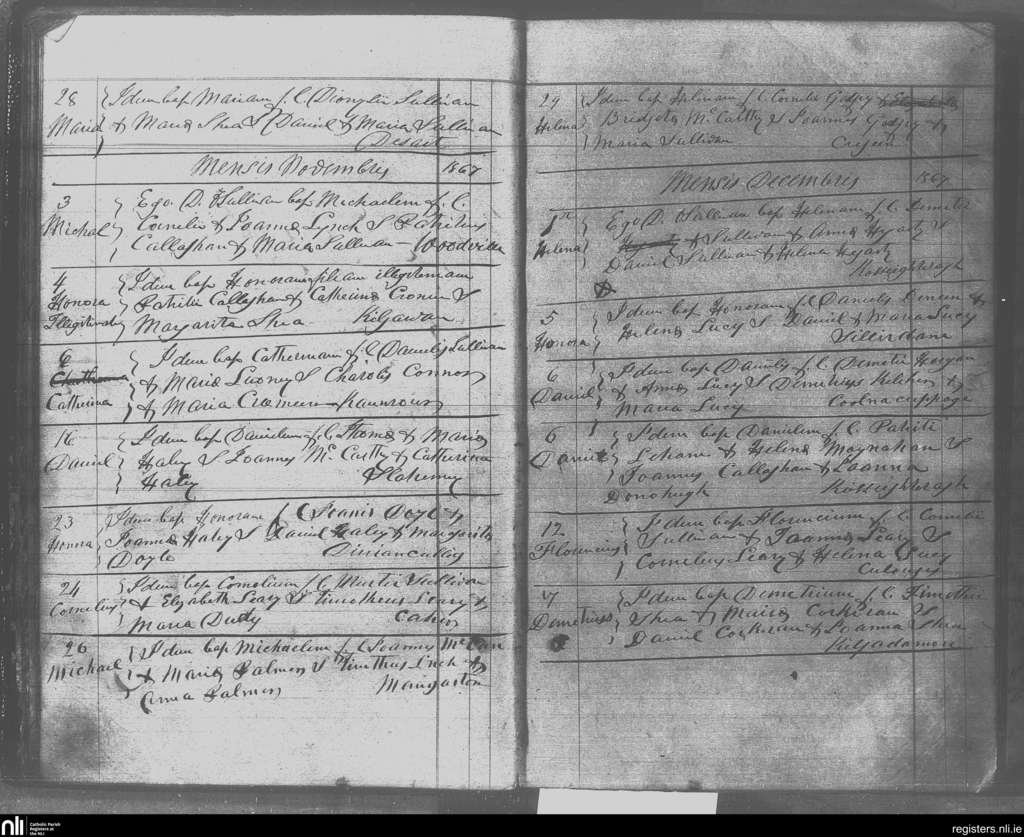 28 Idem bap Mariam f. l. Dionysii Sullivan
Maria & Maria Shea S Daniel & Maria Sullivan
Desart
Mensis Novembris 1867
3 Ego D. O Sullivan bap Michaelem f. l.
Michael Cornelii & Joanna Lynch S Patritius
Callaghan & Maria Sullivan - Woodville
4 Idem bap Honoram filiam illegitimam
Honora Patritii Callaghan & Catherina Cronin S
Illegitimate Margarita Shea Kilgarvan
6 Idem bap Catherinam f. l. Danielis Sullivan
& Maria Looney S Charolis Connor
Catherina & Maria Cremeen
16 Idem bap Danielem f. l. Thoma & Maria
Daniel Haley S Joannes McCartty & Catherina
Haley
23 Idem bap Honoram f. l. Joanis Doyle &
Honora Joanna Haley S Daniel Haley & Margarita
Doyle
24 Idem bap Cornelium f. l. Martii Sullivan
Cornelius & Elyabeth Leary S Timotheus Leary &
Maria Duddy Caher
26 Idem bap Michaelem f. l. Joannes
Michael & Maria Palmer S Timotheus Lnch &
Anna Palmer Mangarton
29 Idem bap Helenam f. l. Cornelii Godfry &
Helena Bridgeta McCartty S Joannes Godfry &
Maria Sullivan
Mensis Decembris 1867
1st Ego D. O Sullivan bap Helenam f. l. Demetrii
Helena & Sullivan & Anna Hegarty S
Daniel Sullivan & Helena Hegarty
5 Idem bap Honoram f. l. Danielis Dineen &
Honora Helena Lucy S Daniel & Maria Lucy
6 Idem bap Danielis f. l. Demetrii Horgan
Daniel & Anna Lucy S Demetrius Kelcher &
Maria Lucy Coolnacuppoge
6 Idem bap Danielem f. l. Patritii
Daniel Lehane & Helena Moynahan S
Joannes Callaghan & Joanna
Donohugh
12 Idem bap Florencium f. l. Cornelii
Florencius Sullivan & Joanna Leary S
Cornelius Leary & Helena Lucy
17 Idem bap Demetrium f. l. Timothii
Demetrius Shea & Maria Corkeran S
Daniel Corkeran & Joanna Shea
Kilgadamore
nli Catholic Parish
Registers at
the NLI
registers.nli.ie